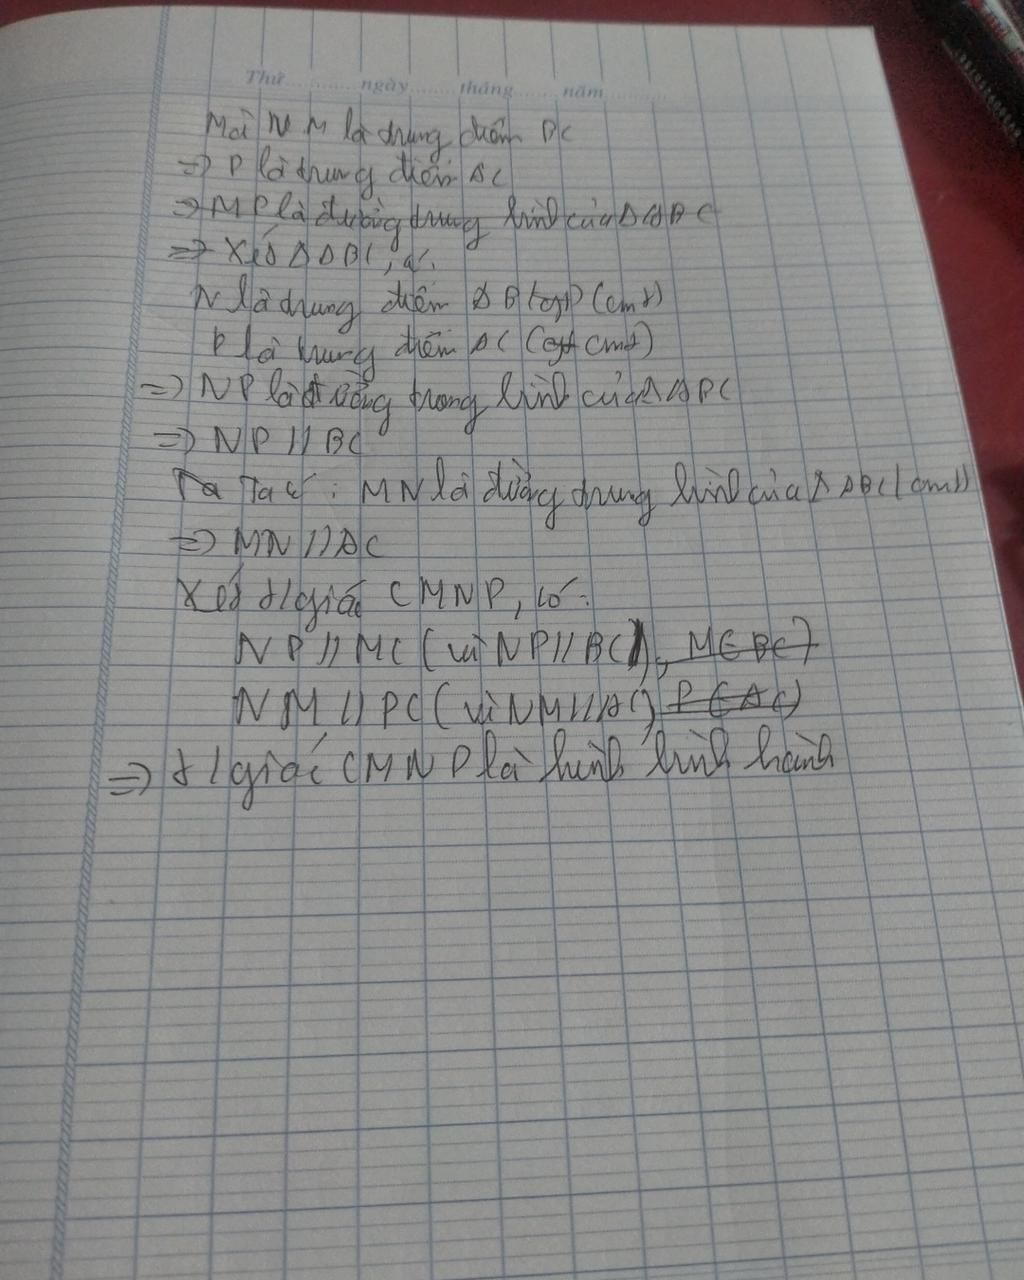 Thứ ........ ngày ...... tháng ...... năm ..........
Mà M là trung điểm BC
=> P là trung điểm AC
=> MP là đường trung bình của ΔABC
=> Xét ΔABC, có:
N là trung điểm AB (cmt)
P là trung điểm AC (cmt)
=> NP là đường trung bình của ΔABC
=> NP // BC
Ta có: MN là đường trung bình của ΔABC (cmt)
=> MN // AC
Xét t/giác CMNP, có:
NP // MC (vì NP // BC), M∈BC)
NM // PC (vì NM // AC) P∈AC)
=> t/giác CMNP là hình bình hành